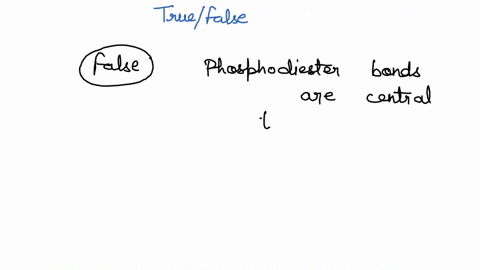 True/false
false Phosphodiester bonds
are central